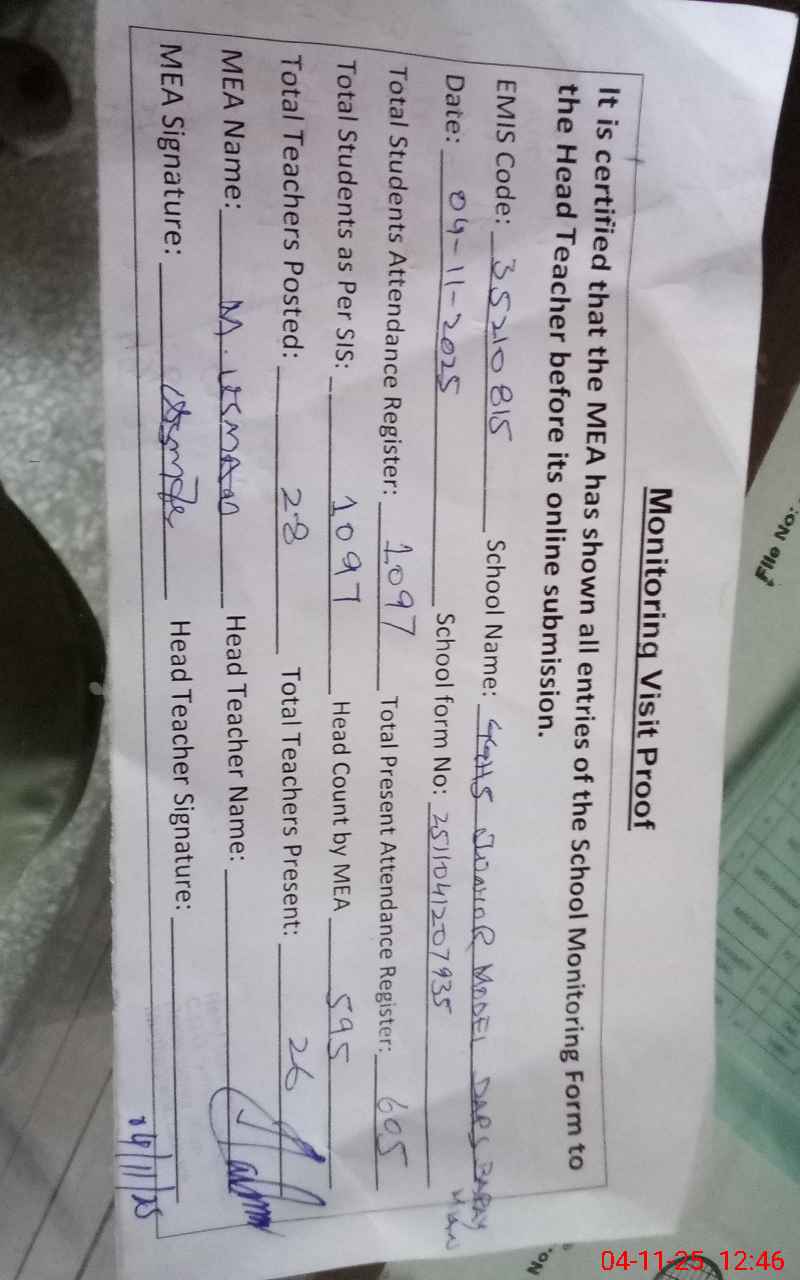 Monitoring Visit Proof
It is certified that the MEA has shown all entries of the School Monitoring Form to
the Head Teacher before its online submission.
EMIS Code: 35210815 School Name: GGHS JUNIOR MODEL DARS BARAY MIAN
Date: 04-11-2025 School form No: 251104120 7935
Total Students Attendance Register: 1097 Total Present Attendance Register: 605
Total Students as Per SIS: 1097 Head Count by MEA 595
Total Teachers Posted: 28 Total Teachers Present: 26
MEA Name: M. USMAN Head Teacher Name:
MEA Signature: Head Teacher Signature:
04/11/25
File No:
No.
04-11-25 12:46